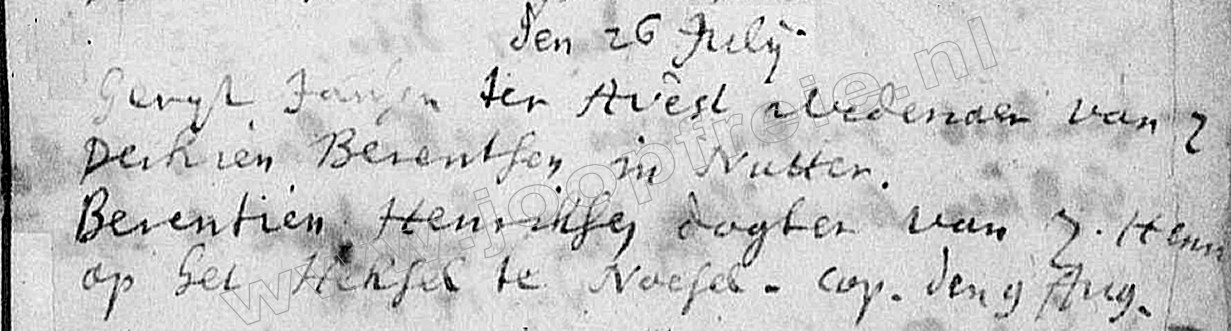 den 26 Julij.
Geryt Jansen ter Avest Wedenaer van z
Derkien Berentsen in Nutter.
Berentien Henriksen dogter van z. Henr
op het Heksel te Noesel. cop. den 9 Aug.
www.jooptreie.nl